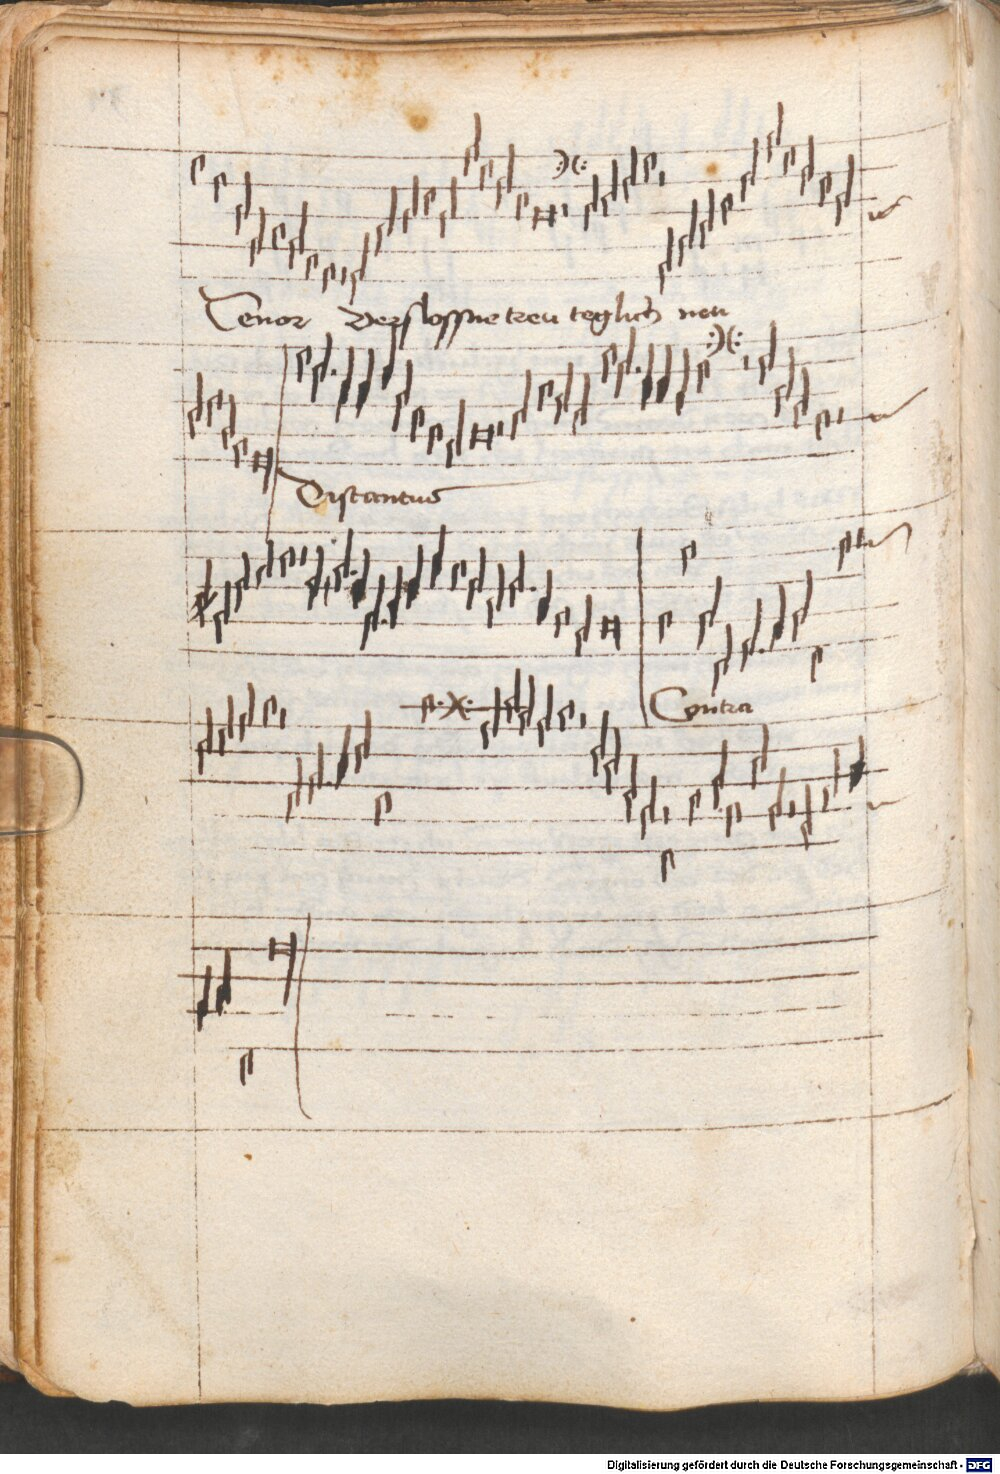 Tenor Verslossne treu teglich neu
Discantus
Contra
Digitalisierung gefördert durch die Deutsche Forschungsgemeinschaft - DFG